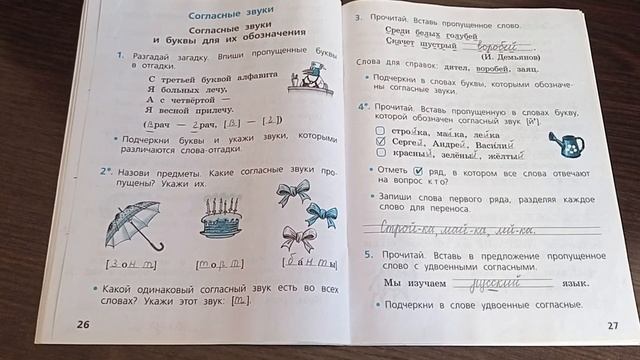 Согласные звуки
Согласные звуки
и буквы для их обозначения
1. Разгадай загадку. Впиши пропущенные буквы
в отгадки.
С третьей буквой алфавита
Я больных лечу,
А с четвёртой —
Я весной прилечу.
(врач — грач, [в] — [г])
• Подчеркни буквы и укажи звуки, которыми
различаются слова-отгадки.
2*. Назови предметы. Какие согласные звуки про-
пущены? Укажи их.
[зонт] [торт] [банты]
• Какой одинаковый согласный звук есть во всех
словах? Укажи этот звук: [т].
26
3. Прочитай. Вставь пропущенное слово.
Среди белых голубей
Скачет шустрый воробей.
(И. Демьянов)
Слова для справок: дятел, воробей, заяц.
• Подчеркни в словах буквы, которыми обозначе-
ны согласные звуки.
4*. Прочитай. Вставь пропущенную в словах букву,
которой обозначен согласный звук [й'].
стройка, майка, лейка
Сергей, Андрей, Василий
красный, зелёный, жёлтый
• Отметь ряд, в котором все слова отвечают
на вопрос кто?
• Запиши слова первого ряда, разделяя каждое
слово для переноса.
Строй-ка, май-ка, лей-ка.
5. Прочитай. Вставь в предложение пропущенное
слово с удвоенными согласными.
Мы изучаем русский язык.
• Подчеркни в слове удвоенные согласные.
27